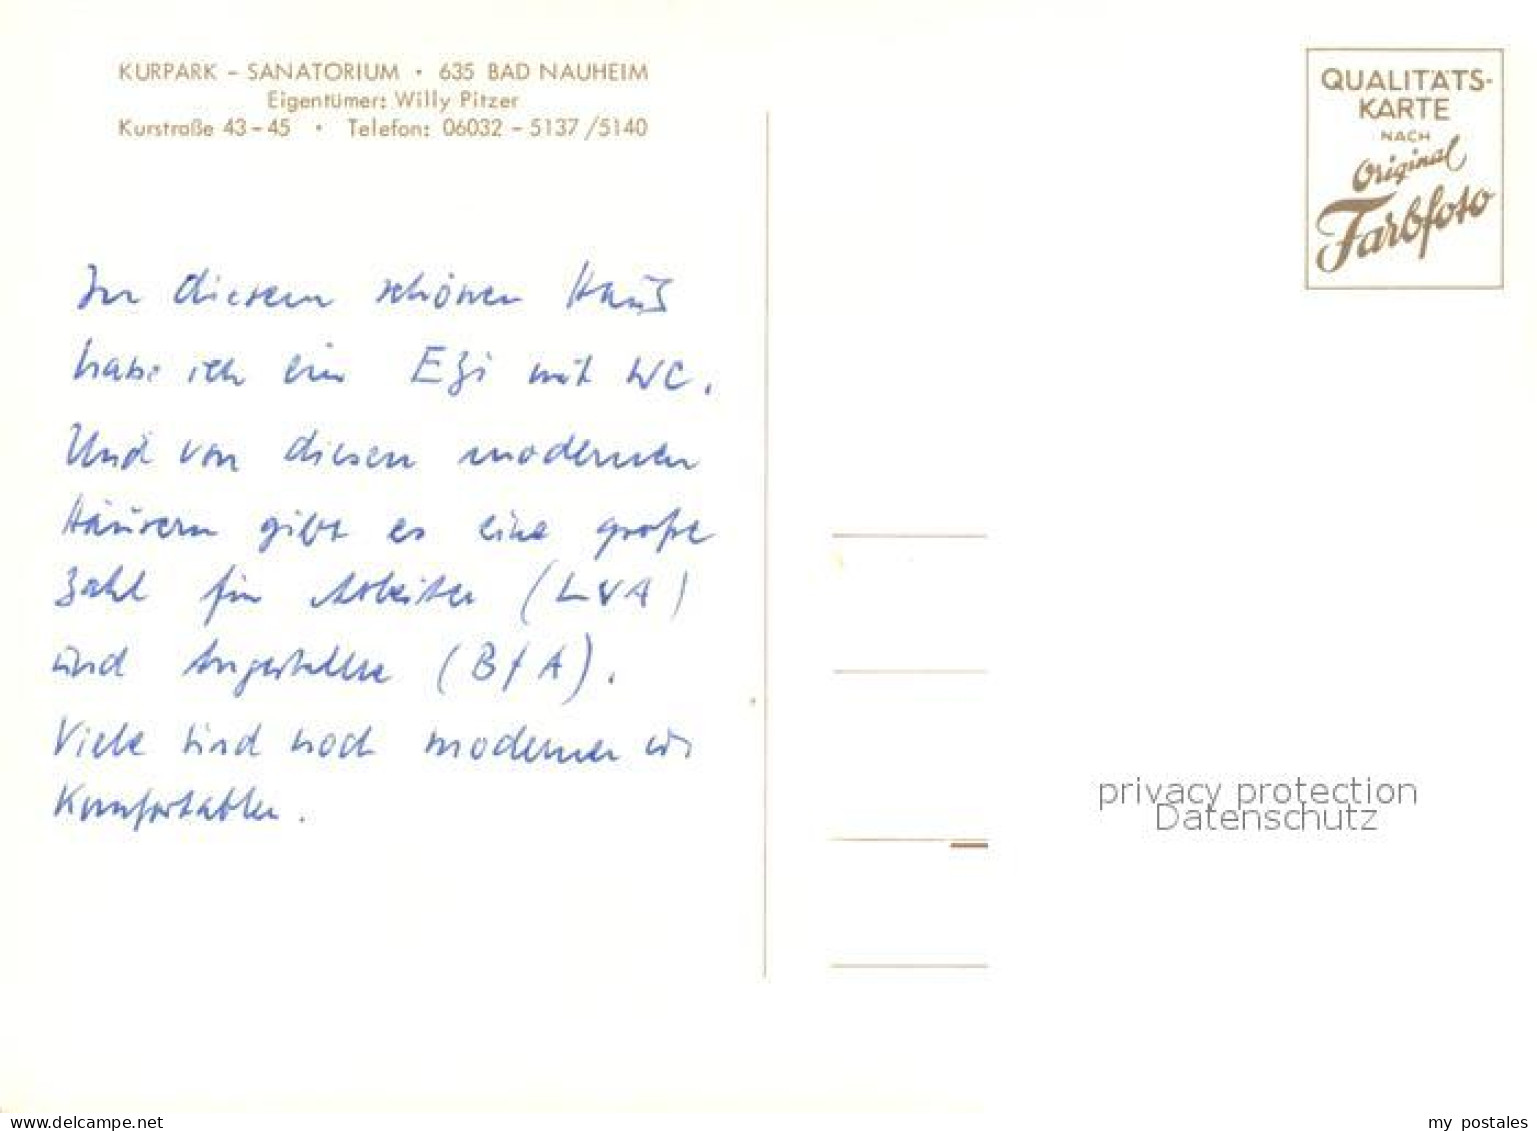 KURPARK - SANATORIUM • 635 BAD NAUHEIM
Eigentümer: Willy Pitzer
Kurstraße 43-45 • Telefon: 06032 - 5137/5140
QUALITÄTS-
KARTE
NACH
Original
Farbfoto
In diesem schönen Haus
habe ich ein EZi mit WC.
Und von diesen modernen
Häusern gibt es eine große
Zahl für Arbeiter (LVA)
und Angestellte (BfA).
Viele sind noch moderner
Komfortabler.
privacy protection
Datenschutz
my_postales